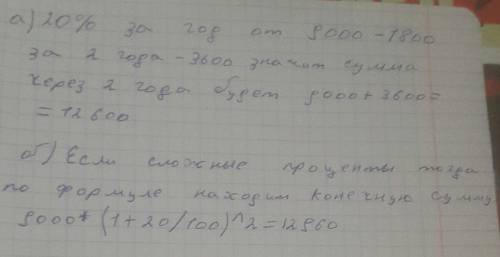 а) 20% за год от 9000 - 1800
за 2 года - 3600 значит сумма
через 2 года будет 9000 + 3600 =
= 12600
б) Если сложные проценты тогда
по формуле находим конечную сумму
9000* (1+20/100)^2 = 12960